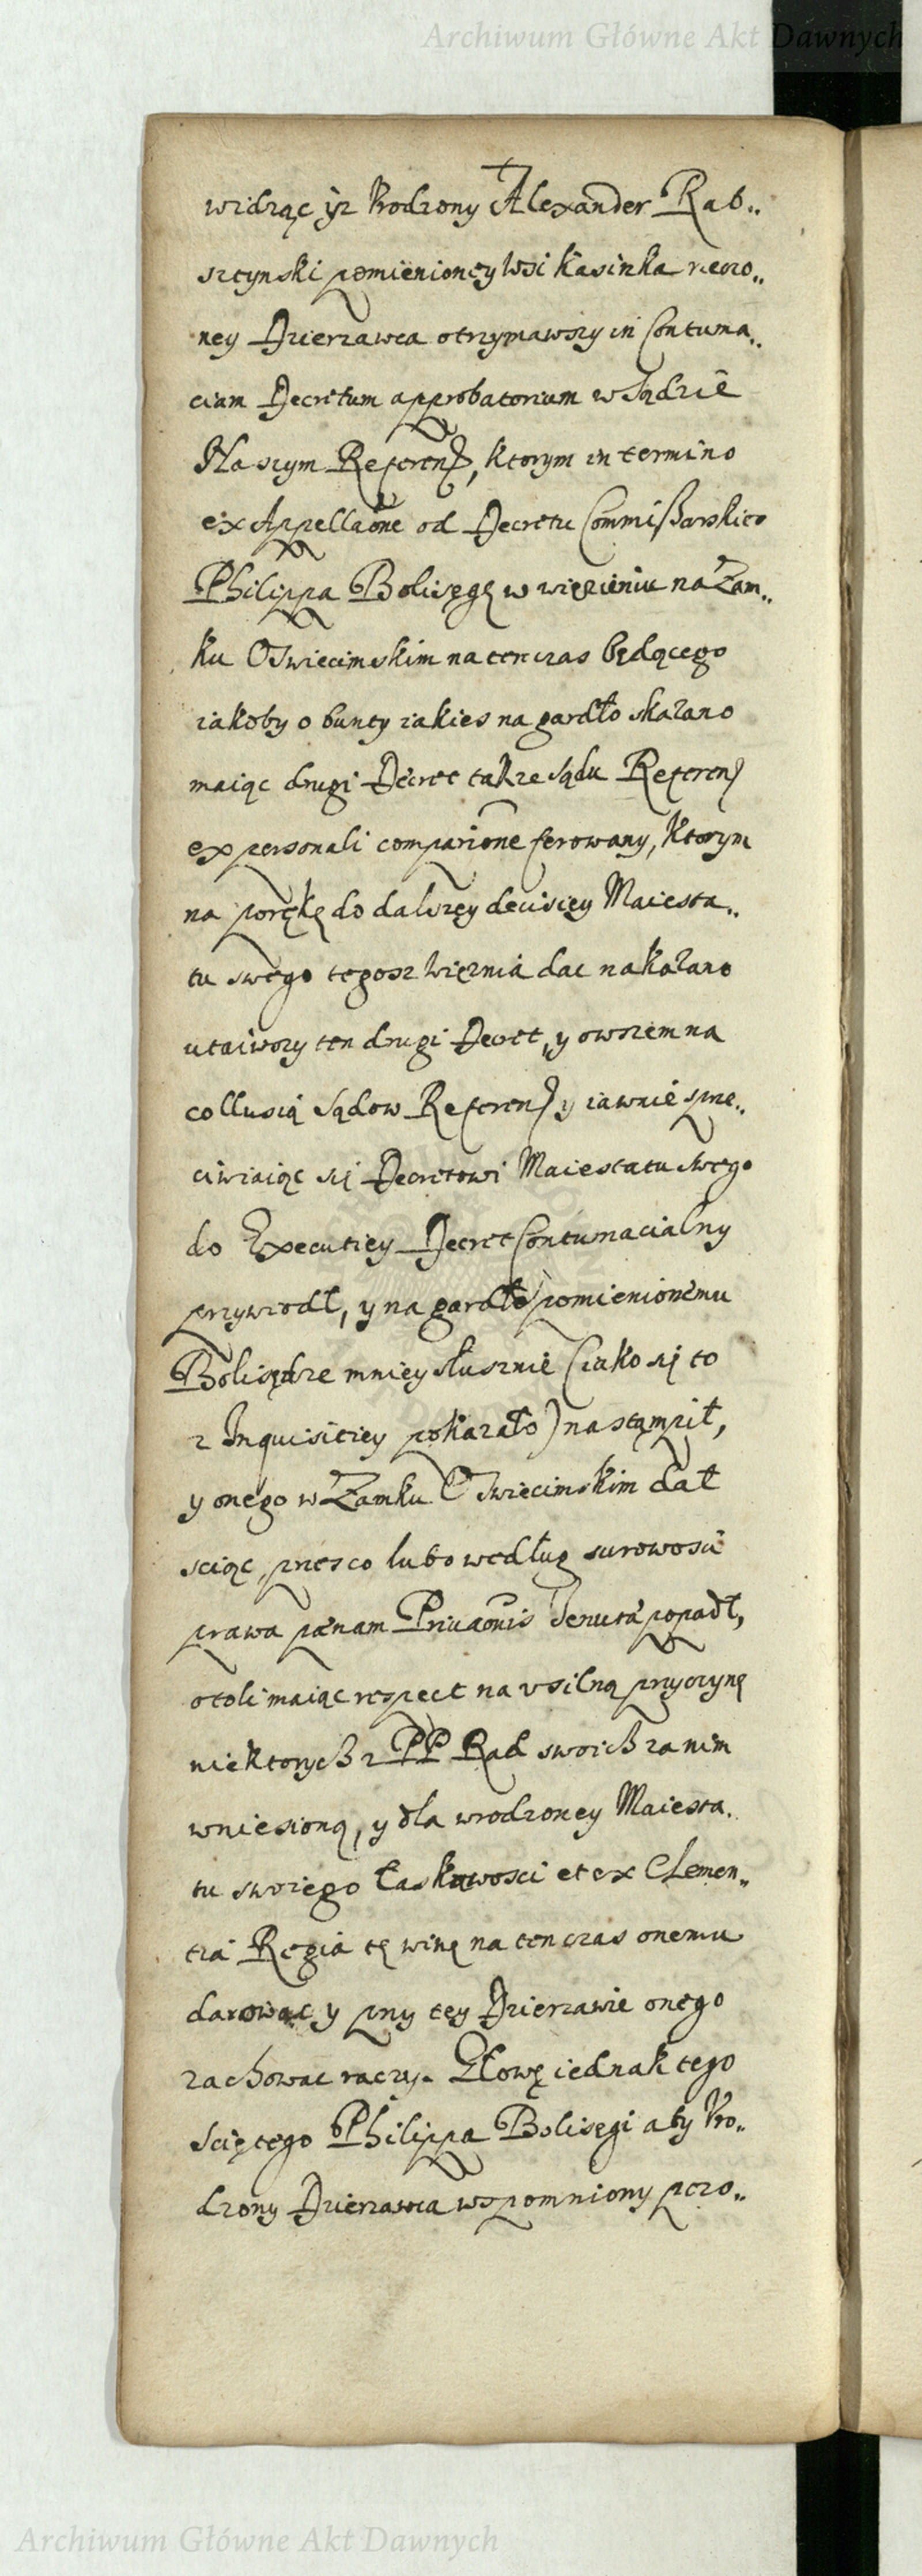 Archiwum Główne Akt Dawnych
widząc yz Vrodzony Alexander Rab„
sztynski pomienioney Wsi Kasinka rzeczo„
ney Dzierzawca otrzymawszy in Contuma„
ciam Decretum approbatorium w Sądzie
Naszym Referen, ktorym in termino
ex Appellaone od Decretu Commissarskiego
Philippa Bolisęgę w więzieniu na Zam„
ku Oswiecimskim na ten czas będącego
iakoby o bunty iakies na gardło skazano
maiąc drugi Decret takze Sądu Referen
ex personali comparione ferowany, ktorym
na porękę do dalszey decisiey Maiesta„
tu swego tegosz Więznia dac nakazano
utaiwszy ten drugi Decret, y owszem na
collusią Sądow Referen y iawnie sprze„
ciwiaiąc się Decretowi Maiestatu swego
do Executiey Decret Contumacialny
przywiodł, y na gardło pomienionemu
Bolisędze mniey słusznie (iako się to
z Inquisitiey pokazało) nastąpił,
y onego w Zamku Oswiecimskim dał
sciąc, przesco lubo według surowosci
prawa pœnam Priuaonis Tenutæ popadł,
otoli maiąc respect na vsilną przyczynę
niektorych z PP Rad swoich za nim
wniesioną, y dla wrodzoney Maiesta„
tu swoiego łaskawosci et ex Clemen„
tia Regia tę winę na ten czas onemu
darowac y przy tey Dzierzawie onego
zachowac raczy. Głowę iednak tego
sciętego Philippa Bolisęgi aby Vro„
dzony Dzierzawca wspomniony pczo„
Archiwum Główne Akt Dawnych